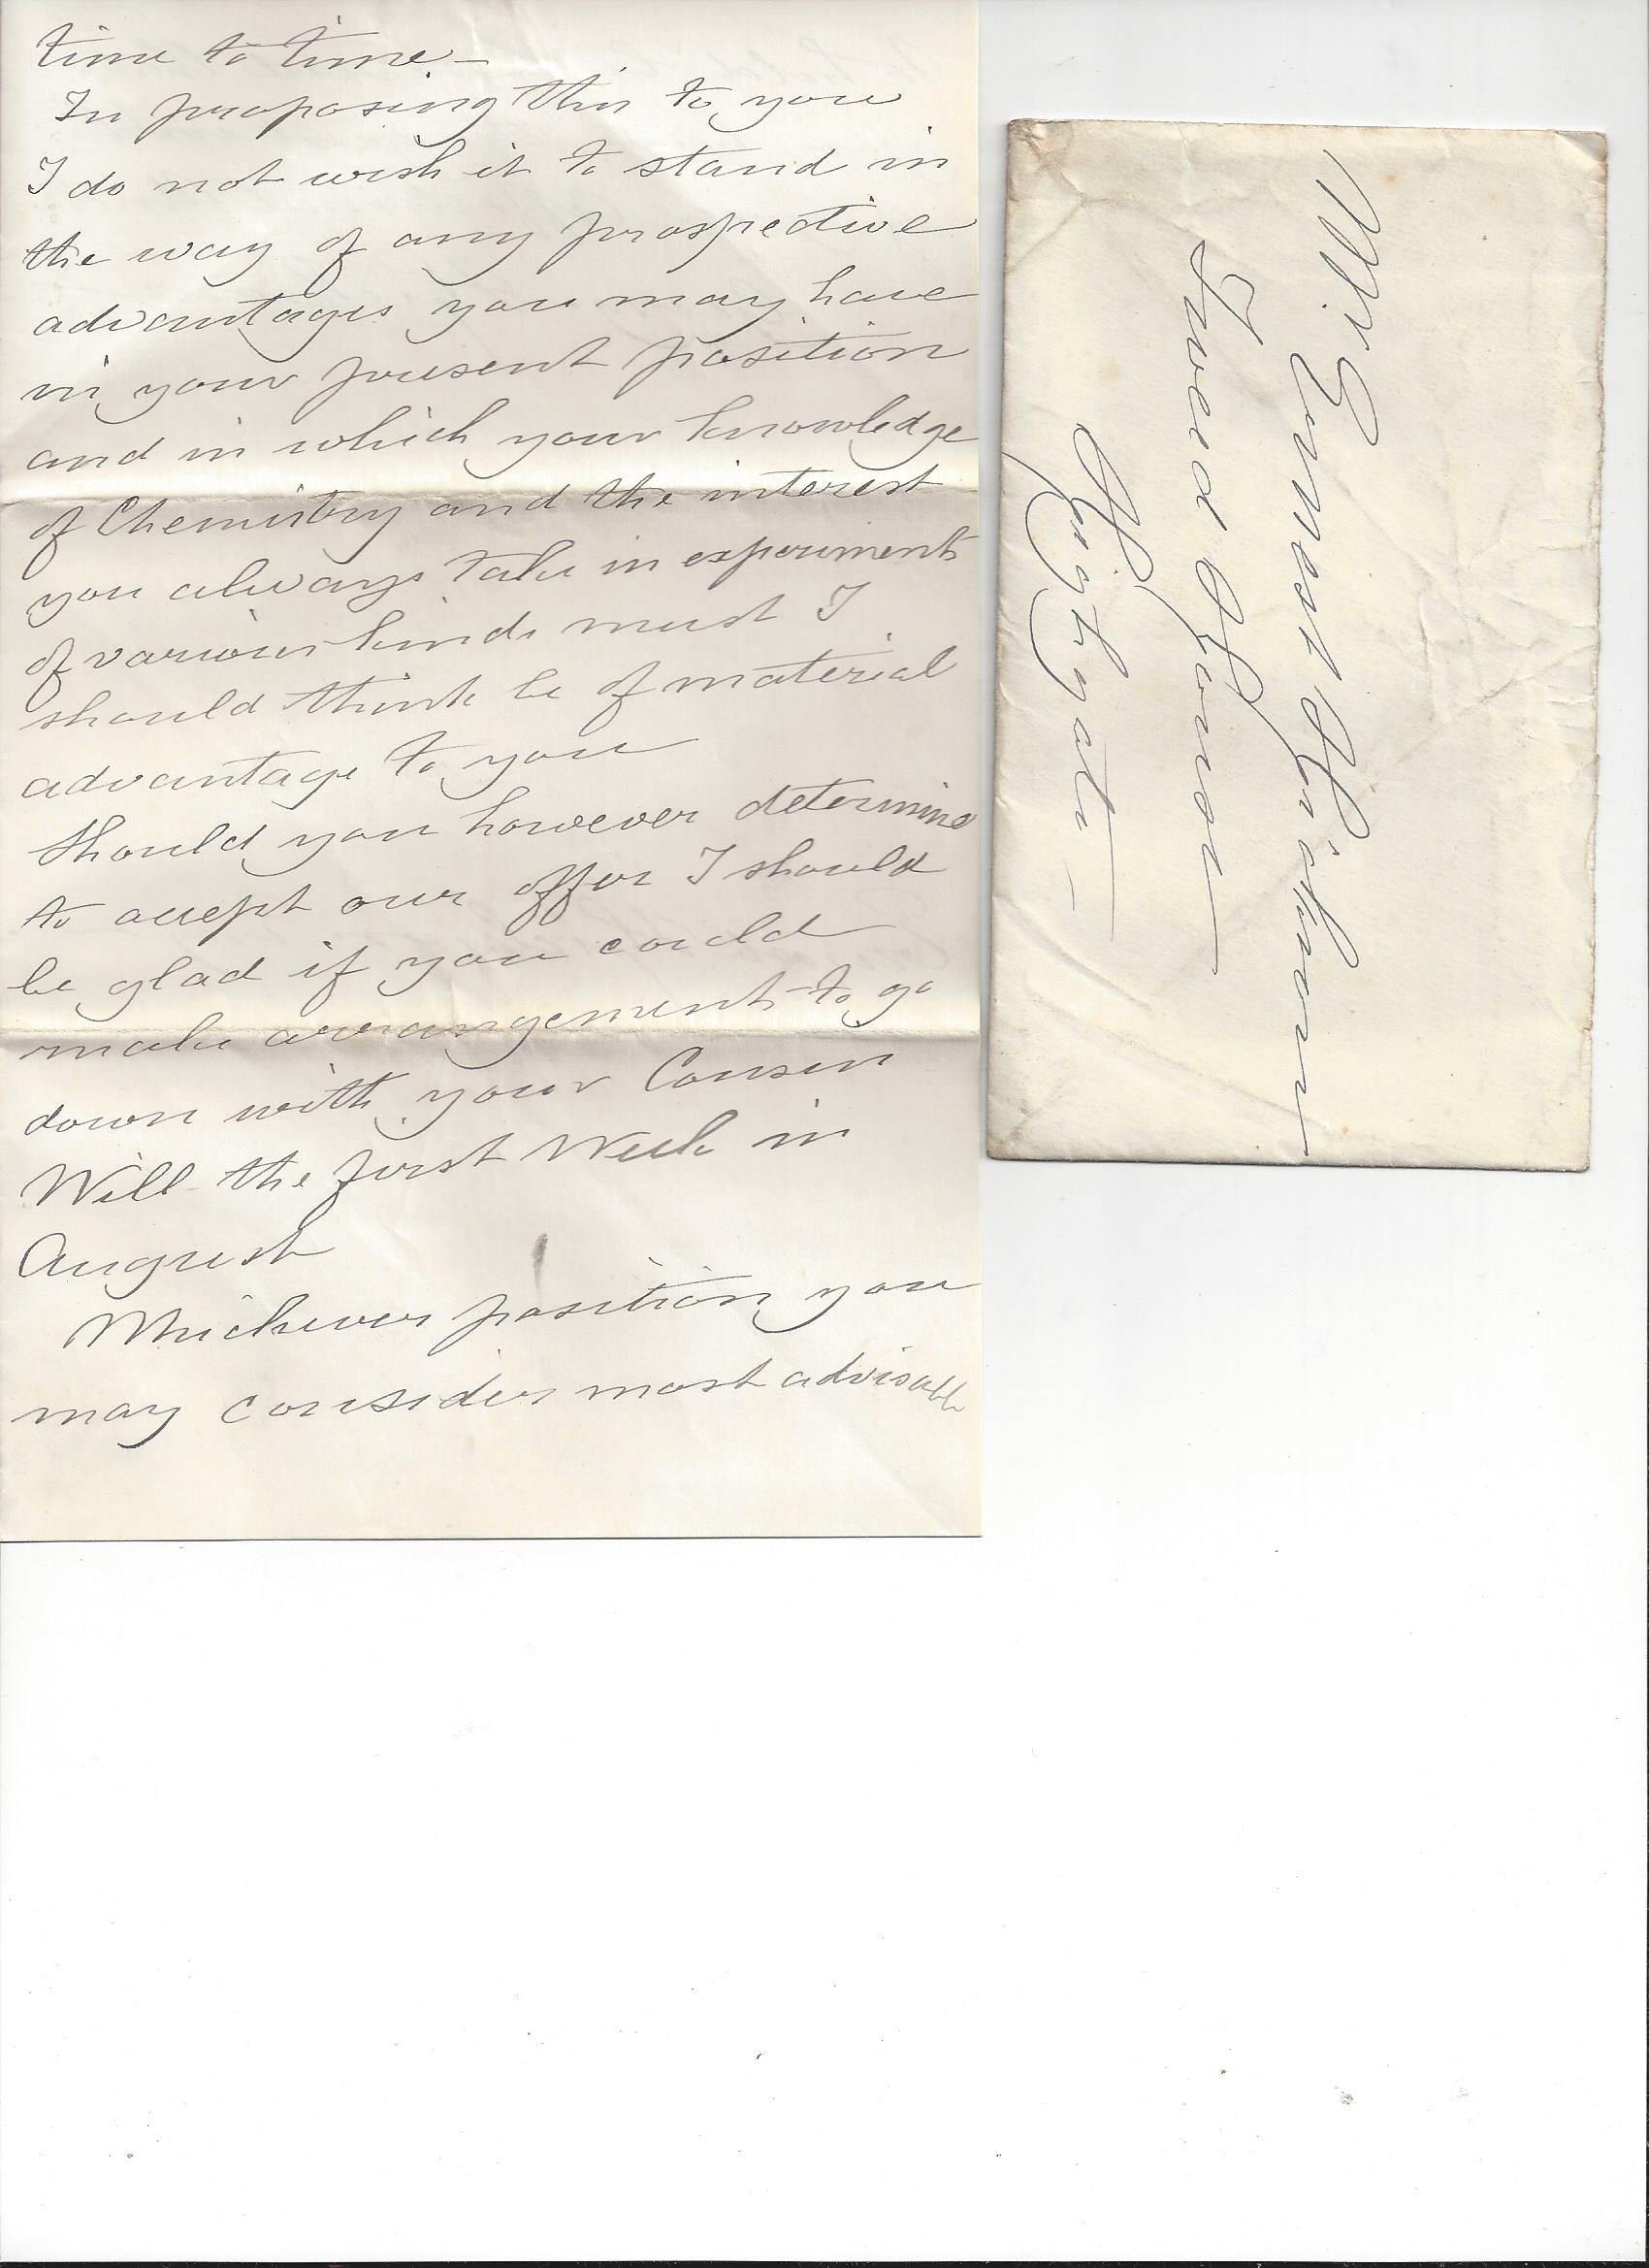 time to time –
In proposing this to you
I do not wish it to stand in
the way of any prospective
advantages you may have
in your present position
and in which your knowledge
of Chemistry and the interest
you always take in experiments
of various kinds must I
should think be of material
advantage to you
Should you however determine
to accept our offer I should
be glad if you could
make arrangements to go
down with your Cousin
Will the first Week in
August
Whichever position you
may consider most advisable
Ernest Hickman
Tweed House
Highgate –